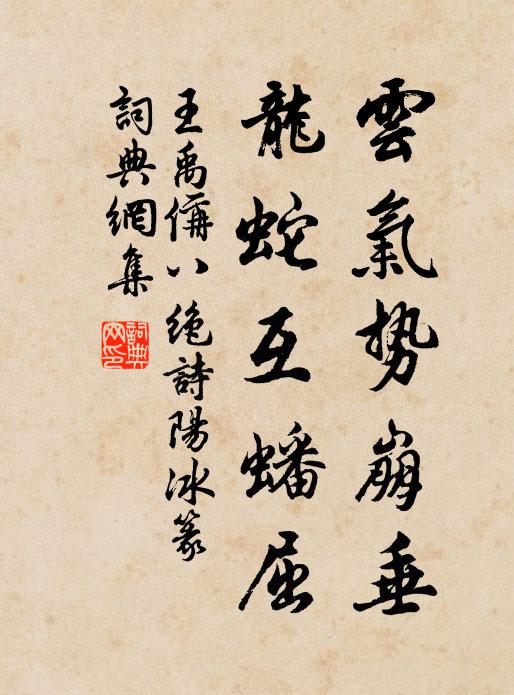 雲氣勢崩垂
龍蛇互蟠屈
王禹偁八絶詩陽冰篆
詞典網集
詞典網印